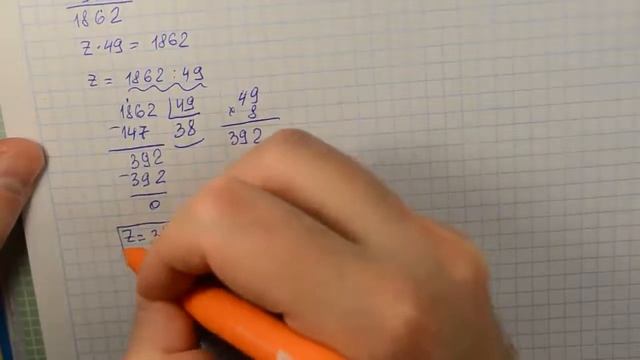 1862
z · 49 = 1862
z = 1862 : 49
1862 49
- 147 38
392
- 392
0
49
× 8
392
z = 3